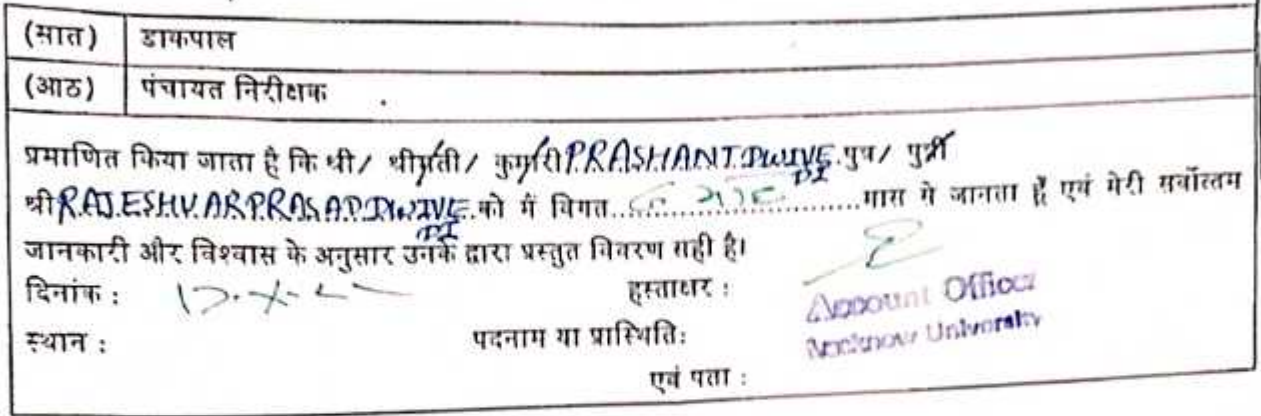 (सात) डाकपाल
(आठ) पंचायत निरीक्षक
प्रमाणित किया जाता है कि श्री/ श्रीमती/ कुमारी PRASHANT.DWIVE.पुत्र/ पुत्री
DI
श्री RAJESHVARPRASAD.DWIVE.को मैं विगत..............................मास से जानता हूँ एवं मेरी सर्वोत्तम
DI
जानकारी और विश्वास के अनुसार उनके द्वारा प्रस्तुत विवरण सही है।
दिनांक : हस्ताक्षर :
Account Officer
स्थान : पदनाम या प्रास्थिति: Lucknow University
एवं पता :